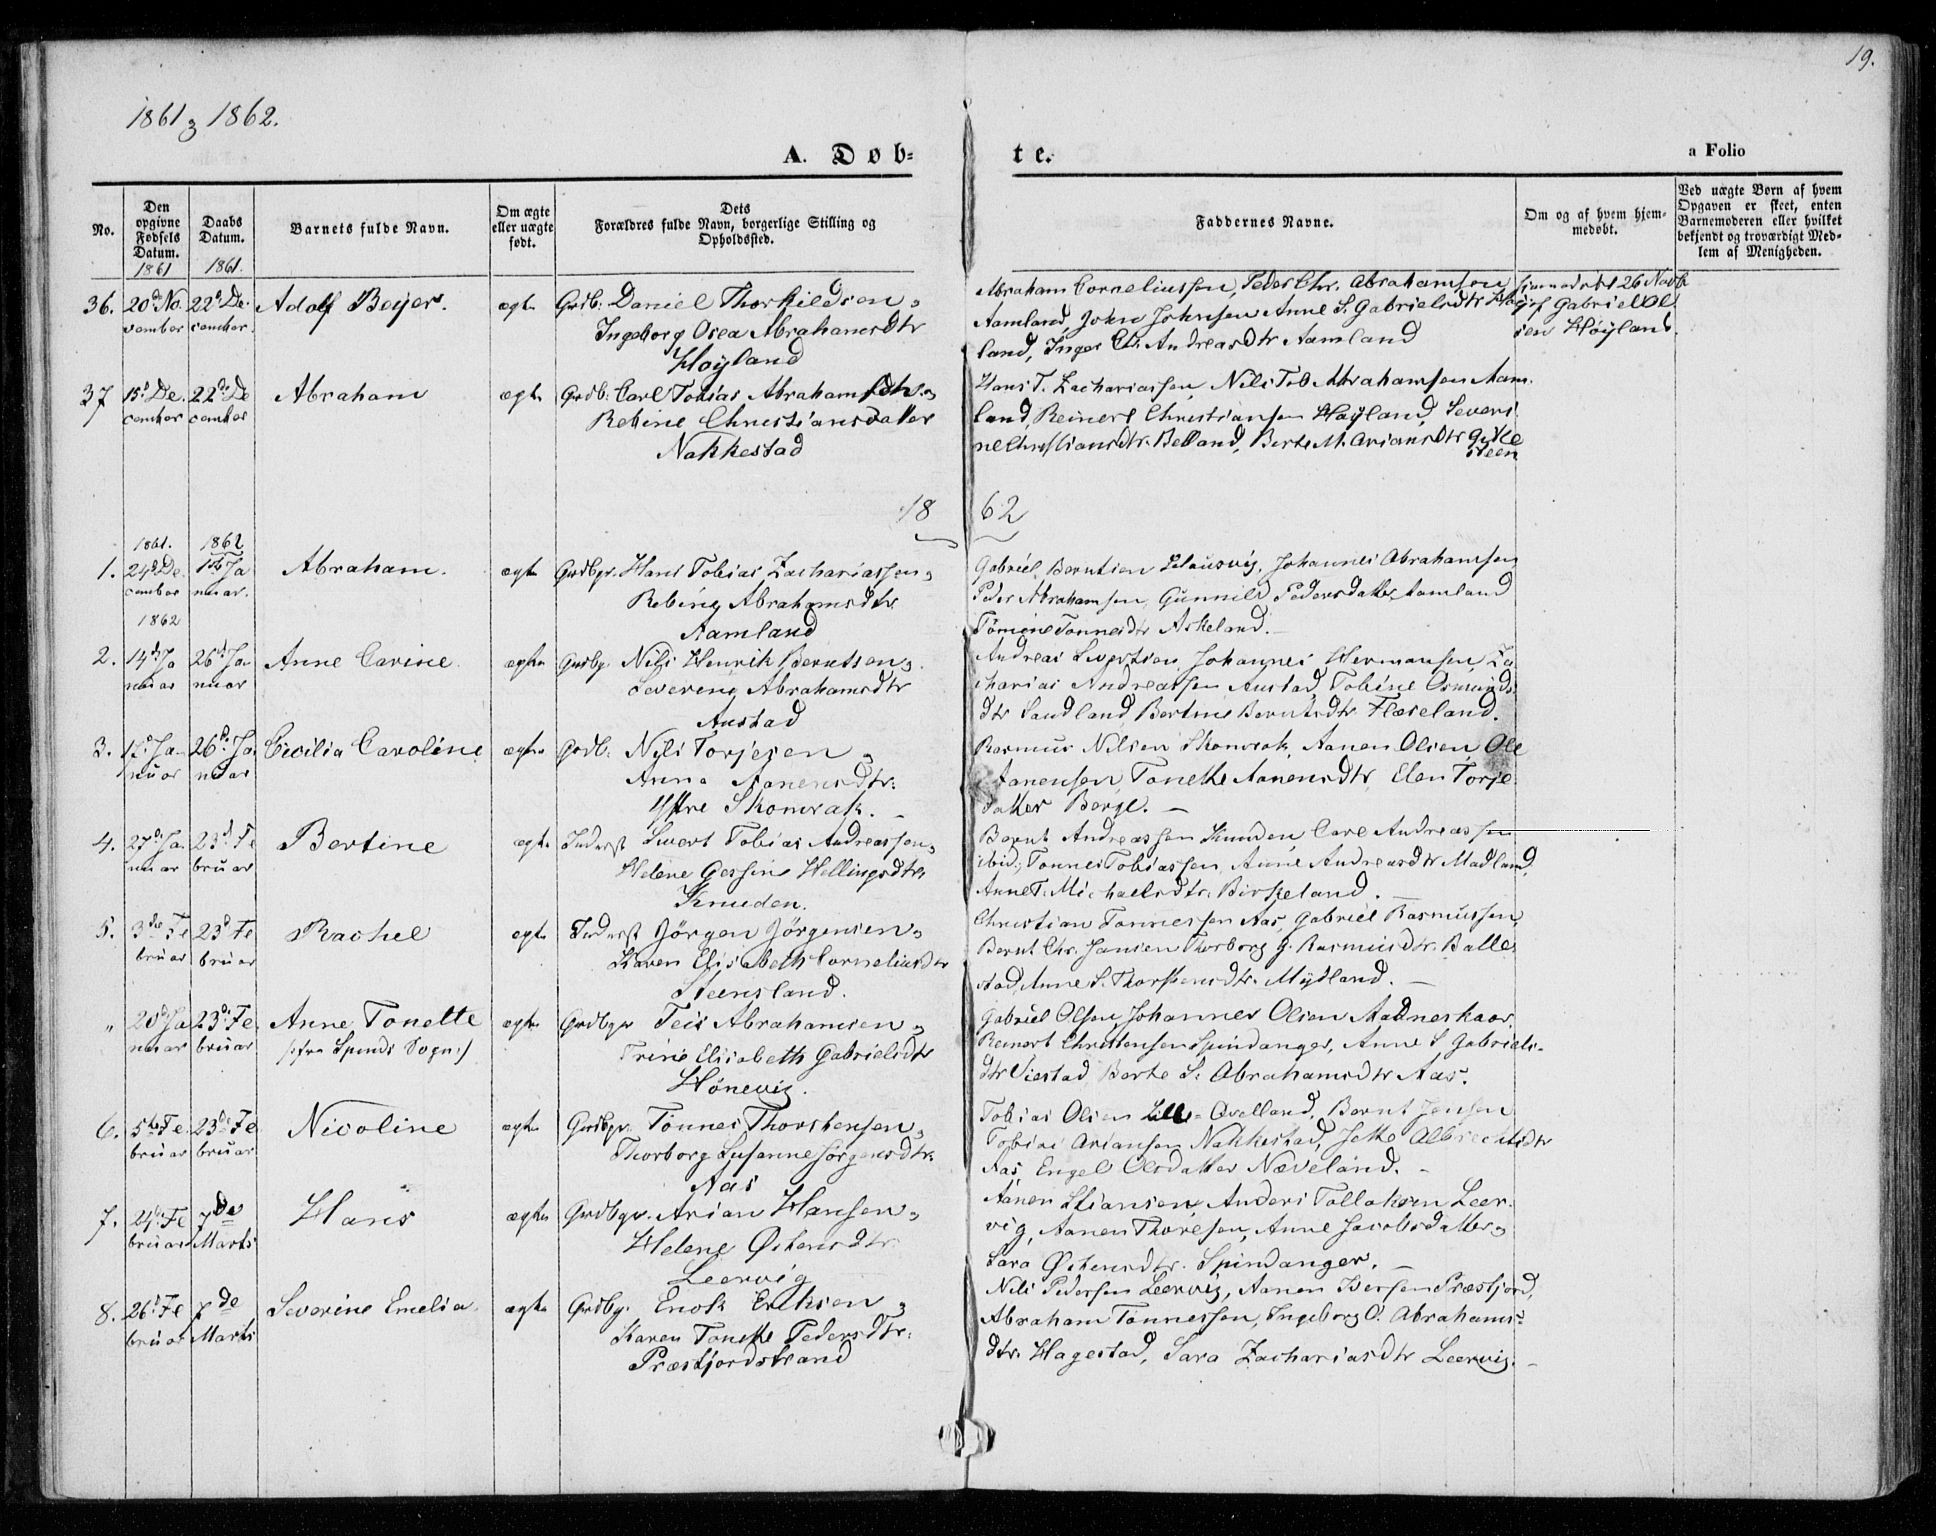 19.
1861 & 1862.
A. Døb-
te.
a Folio
No.
Den opgivne Fødsels Datum.
1861
Daabs Datum.
1861.
Barnets fulde Navn.
Om ægte eller uægte født.
Dets Forældres fulde Navn, borgerlige Stilling og Opholdssted.
Faddernes Navne.
Om og af hvem hjemmedøbt.
Ved uægte Børn af hvem Opgaven er skeet, enten Barnemoderen eller hvilket bekjendt og troværdigt Medlem af Menigheden.
36. 20de No- 22de De- Adolf Beyer. ægte Grdb: Daniel Thorkildsen &
vember cember. Ingeborg Osea Abrahamsdtr
Høyland
Abraham Corneliussen, Peder Chr. Abrahamsen
Aamland, John Johnsen Anne S. Gabrielsdtr Høy
land, Inger Andreasdtr Aamland
hjemmedøbt 26 Novb
af Gabriel Ol
sen Høyland.
37 15de De- 22de De Abraham ægte Grdb: Carl Tobias Abrahamsen &
cember cember Rebine Christiansdatter
Nakkestad
Hans T. Zachariassen, Nils Tob Abrahamsen Aam
land, Reinert Christiansen Høyland, Severi
ne Christiansdtr. Belland, Berte M. Ariansdtr Gytle
steen
18 62
1861. 1862
1. 24de De. 1ste Ja Abraham. ægte Grdbgr. Hans Tobias Zachariassen &
cember nuar. Rebine Abrahamsdtr
Aamland
Gabriel Berntsen, Johannes Abrahamsen
Peder Abrahamsen, Gunnild Pedersdatter Aamland
Tomine Tønnesdtr Askeland.
1862
2. 14de Ja 26de Ja- Anne Carine. ægte Grdbgr. Nils Henrik Berntsen &
nuar nuar Severine Abrahamsdtr
Austad
Andreas Sivertsen, Johannes Hermansen, Za
charias Andreassen Austad, Tobine Osmunds
dtr Sandland, Bertine Berntsdtr Flæseland.
3. 17de Ja- 26de Ja. Cecilia Caroline. ægte Grdb: Nils Torjesen &
nuar nuar Anna Aanensdtr:
Yttre Skomrak.
Rasmus Nilsen Skomrak, Aanen Olsen, Ole
Aanensen, Tonette Aanensdtr, Elen Torje
datter Berge.
4. 27de Ja- 23de Fe Bertine ægte Inderst Sivert Tobias Andreassen &
nuar bruar Helene Gesine Hellingsdtr
Knuden.
Bernt Andreassen Knuden, Carl Andreassen
ibid; Tønnes Tobiassen, Anne Andreasdtr Madland,
Anne T. Michaelsdtr. Birkeland.
5. 3die Fe 23de Fe Rachel ægte Inderst Jørgen Jørgensen &
bruar bruar Karen Elisabeth Corneliusdtr
Steensland.
Christian Tønnessen Aas, Gabriel Rasmussen,
Bernt Chr. Jansen Thorborg G. Rasmusdtr. Balle
stad, Anne S. Thorstensdtr. Mydland.
„ 20de Ja 23de Fe. Anne Tonette ægte Grdbgr Teis Abrahamsen &
nuar bruar (:fra Spinds Sogn:) Trine Elisabeth Gabrielsdtr
Hønevig.
Gabriel Olsen, Johannes Olsen Aadneskaar
Reinert Christensen Spindanger, Anne S Gabriels-
dtr Siestad, Berte S. Abrahamsdtr Aas.
6. 5te Fe. 23de Fe. Nicoline ægte Grdbgr. Tønnes Thorstensen &
bruar bruar. Thorborg Susanne Jørgensdtr.
Aas
Tobias Olsen Lille-Qvelland, Bernt Jensen
Tobias Ariansen Nakkestad, Jette Albrechtsdtr
Aas, Engel Olsdatter Næveland.
7. 24de Fe 7de Hans ægte Grdbgr. Arian Hansen &
bruar Marts Helene Østensdtr.
Leervig
Aanen Stiansen, Anders Tollaksen Leer-
vig, Aanen Thoresen, Anne Jacobsdatter &
Sara Østensdtr. Spindanger.
8. 26de Fe 7de Severine Emelia. ægte Grdbgr. Enok Eriksen &
bruar Marts Karen Tonette Pedersdtr:
Præstjordstrand
Nils Pedersen Leervig, Aanen Iversen Præstjord,
Abraham Tønnessen, Ingeborg O. Abrahams-
dtr. Hagestad, Sara Zachariasdtr Leervig.